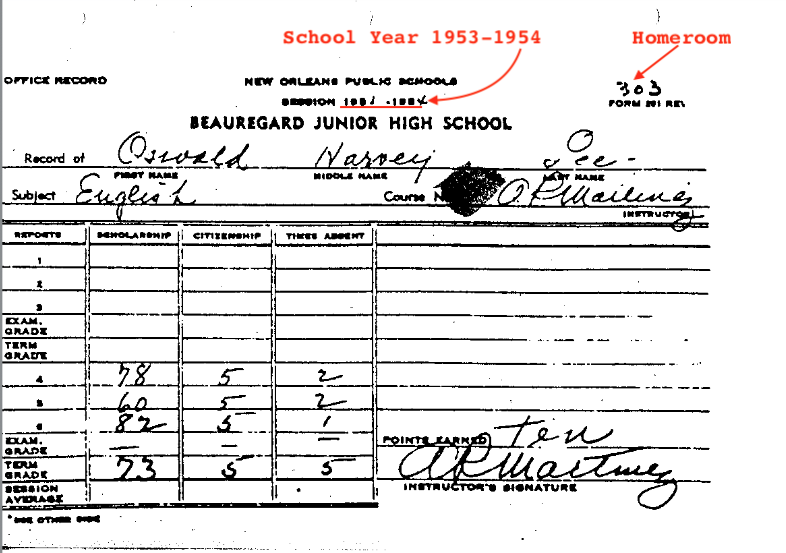 School Year 1953-1954 Homeroom
OFFICE RECORD NEW ORLEANS PUBLIC SCHOOLS 303
SESSION 195 -1954 FORM 291 REV.
BEAUREGARD JUNIOR HIGH SCHOOL
Record of Oswald Harvey Lee-
FIRST NAME MIDDLE NAME LAST NAME
Subject English Course N A R Martinez
INSTRUCTOR
REPORTS SCHOLARSHIP CITIZENSHIP TIMES ABSENT
1
2
3
EXAM.
GRADE
TERM
GRADE
4 78 5 2
5 60 5 2
6 82 5 1
EXAM.
GRADE — — — POINTS EARNED Ten
TERM
GRADE 73 5 5 A R Martinez
SESSION INSTRUCTOR'S SIGNATURE
AVERAGE
*SEE OTHER SIDE